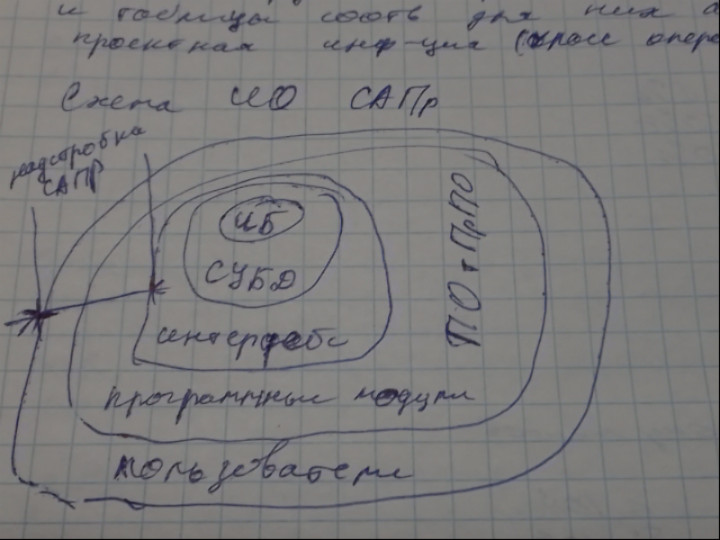 и таблицы соотв для них
проектная инф-ция (класс опера
Схема ИО САПр
надстройка
САПР
ИБ
СУБД
интерфейс
ПО + ПрПО
программные модули
пользователи